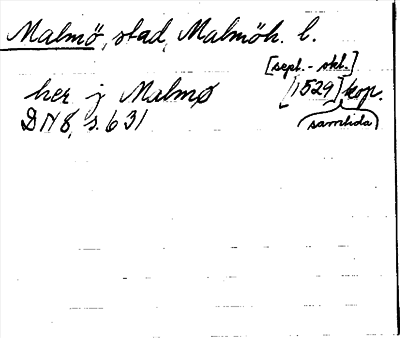 Malmö, stad, Malmöh. l.
[sept. - okt.]
her j Malmø [1529] kop.
DN 8, s. 631 (samtida)